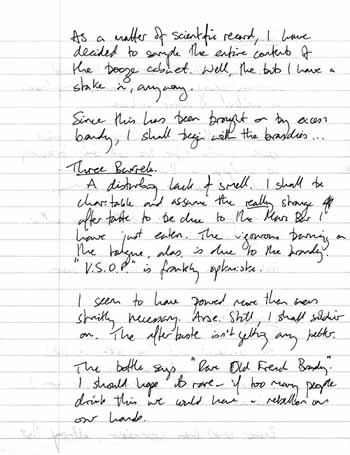 As a matter of scientific record, I have
decided to sample the entire contents of
the booze cabinet. Well, the bits I have a
stake in, anyway.
Since this has been brought on by excess
boredom, I shall begin with the brandies...
Three Barrels.
A disturbing lack of smell. I shall be
charitable and assume the really strange
aftertaste to be due to the Mars Bar I
have just eaten. The vigorous burning on
the tongue, alas, is due to the brandy.
"V.S.O.P." is frankly optimistic.
I seem to have poured more than was
strictly necessary. Arse. Still, I shall soldier
on. The aftertaste isn't getting any better.
The bottle says "Rare Old French Brandy".
I should hope it's rare - if too many people
drink this we would have a rebellion on
our hands.